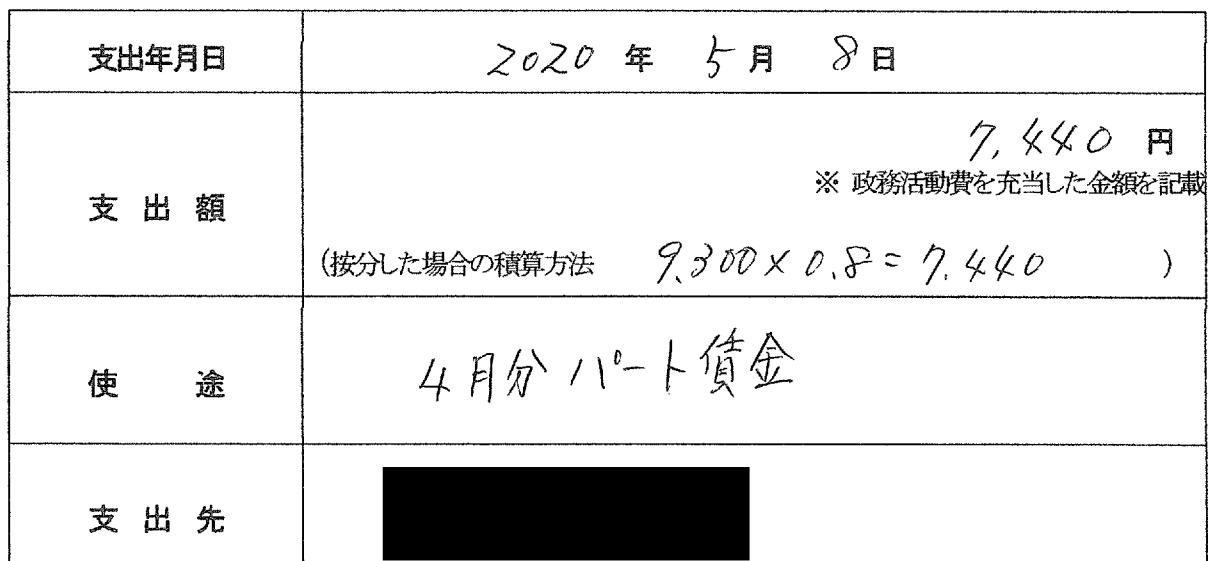 支出年月日 2020 年 5 月 8 日
7,440 円
※ 政務活動費を充当した金額を記載
支出額
(按分した場合の積算方法 9,300×0.8=7,440 )
使途 4月分 パート債金
支出先